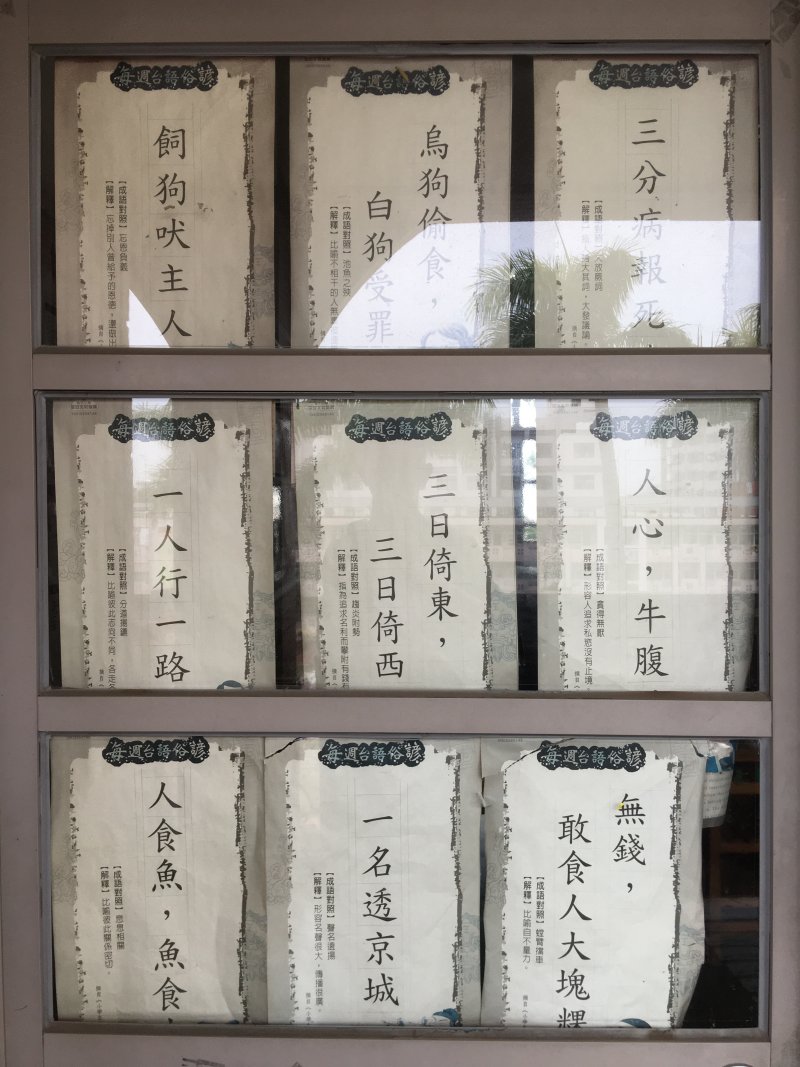 每週台語俗諺
飼狗吠主人
【成語對照】忘恩負義
【解釋】忘掉別人曾給予的恩德,還
每週台語俗諺
烏狗偷食,
白狗受罪
【成語對照】池魚之殃
【解釋】比喻不相干的人無
每週台語俗諺
三分病報死
大放厥詞
大其詞,大發議論。
每週台語俗諺
一人行一路
【成語對照】分道揚鑣
【解釋】比喻彼此志向不同,各走各
每週台語俗諺
三日倚東,
三日倚西
【成語對照】趨炎附勢
【解釋】指為追求名利而攀附有錢有
每週台語俗諺
人心,牛腹
【成語對照】貪得無厭
【解釋】形容人追求私慾沒有止境
每週台語俗諺
人食魚,魚食
【成語對照】息息相關
【解釋】比喻彼此關係密切。
每週台語俗諺
一名透京城
【成語對照】聲名遠揚
【解釋】形容名聲很大,傳播很廣。
每週台語俗諺
無錢,
敢食人大塊粿
【成語對照】螳臂擋車
【解釋】比喻自不量力。